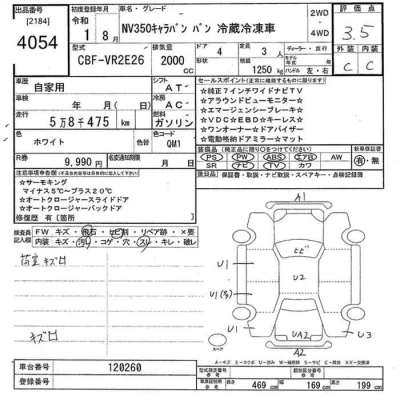 出品番号 初度登録年月 車名・グレード 評価点
[2184] 令和 1年 8月 NV350キャラバン バン 冷蔵冷凍車 2WD・4WD 3.5
4054
型式 排気量 ドア 定員 ディーラー・並行 外装 内装
CBF-VR2E26 2000 CC 4 3 人
形状 積載 1250 kg ハンドル 左・右 C C
車歴 自家用 シフト AT
車検 年 月( 日) エアコン AC
走行 5万8千475 km 燃料 ガソリン
色 ホワイト 色コード QM1
R券 9,990 円
セールスポイント(正常に機能するものに限る)
☆純正7インチワイドナビTV
☆アラウンドビューモニター
☆エマージェンシーブレーキ
☆VDC☆EBD☆キーレス☆
☆ワンオーナー☆ドアバイザー
☆電動格納ドアミラー☆マット
装備品 (純正品に限り○をつけてください)
PS PW ABS エアB AW
SR ナビ TV カワ
新車保証書 有・無
保証書・取説・ナビ取説・スペアキー・点検記録簿
注意事項
☆サーモキング
マイナス5℃~プラス20℃
☆オートクロージャースライドドア
☆オートクロージャーバックドア
修復歴 有( 箇所)
検査員記入欄 FW キズ・飛石・ヒビ割・リペア跡・×要
内装 キズ・汚レ・コゲ・穴・スレ・キレ
荷室キズ凹
キズ凹
A1
U1 ヒビ U1
U2
U1
U1 UA2 U3
A2
スペア
車台番号 120260
長さ 469 cm 幅 169 cm 高さ 199 cm